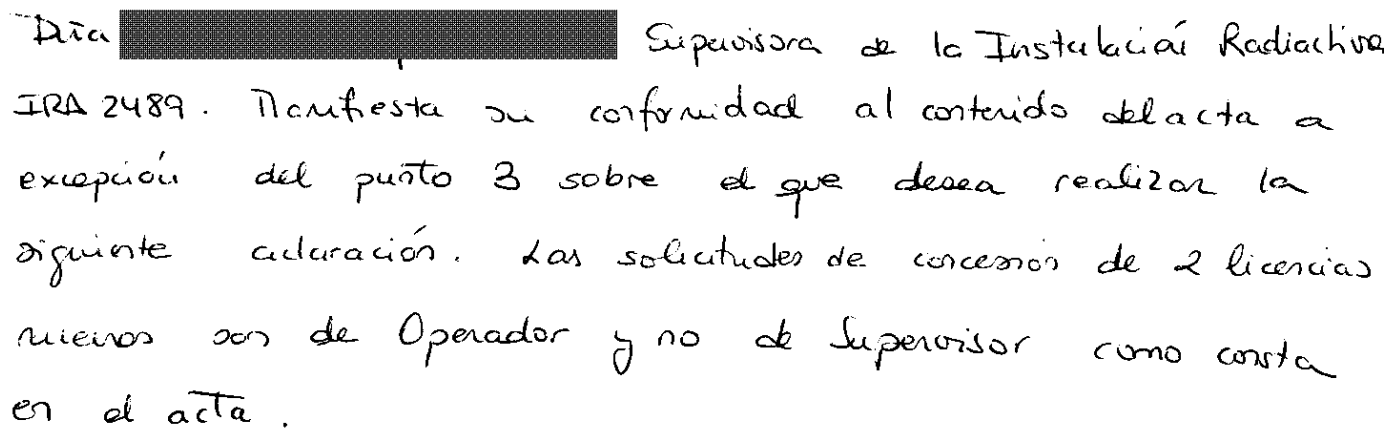 Dña Supervisora de la Instalación Radiactiva
IRA 2489. Manifiesta su conformidad al contenido del acta a
excepción del punto 3 sobre el que desea realizar la
siguiente aclaración. Las solicitudes de concesión de 2 licencias
nuevas son de Operador y no de Supervisor como consta
en el acta.